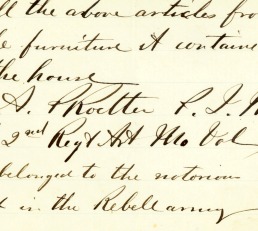 ll the above articles fro
le furniture it containe
the house
A. Proetter P. J. M
2nd Regt Art Mo Vol
belonged to the notorious
t in the Rebell army